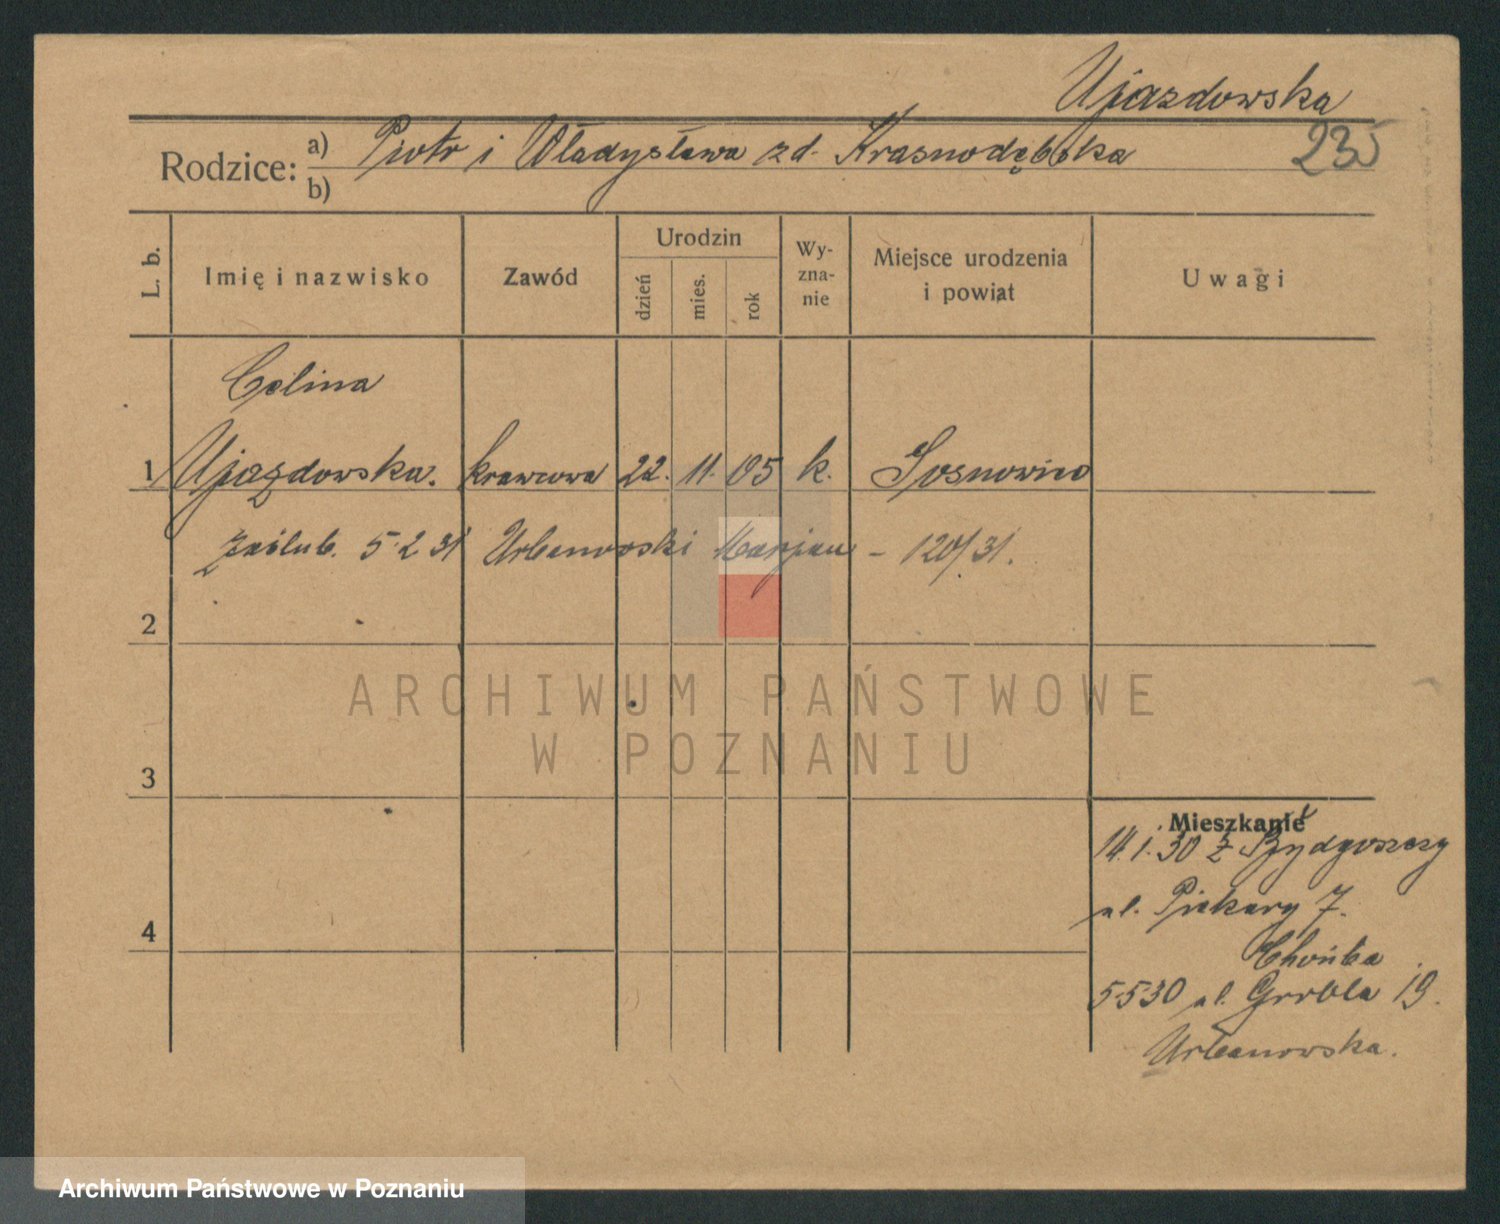 Ujazdowska
235
Rodzice: a) Piotr i Władysława zd. Krasnodębska
b)
L. b.
Imię i nazwisko
Zawód
Urodzin
dzień
mies.
rok
Wy-
zna-
nie
Miejsce urodzenia
i powiat
Uwagi
Celina
1 Ujazdowska. krawcowa 22. 11. 05 k. Sosnowice
zaślub. 5.2 31 Urbanowski Marjan – 120/31.
2
ARCHIWUM PAŃSTWOWE
W POZNANIU
3
Mieszkanie
14.1.30 z Bydgoszczy
ul. Piekary 7.
4
5530 ul. Grobla 19.
Urbanowska.
Archiwum Państwowe w Poznaniu